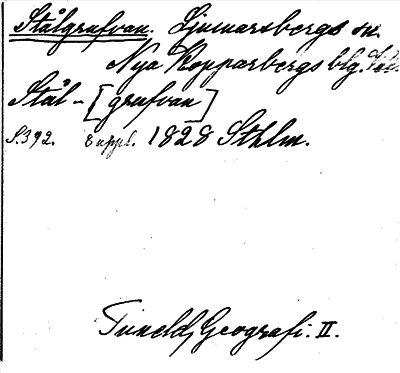 Stålgrufvan. Ljusnarsbergs sn.
Nya Kopparbergs blg.
Stål-[grufvan]
S. 392. 8 uppl. 1828 Sthlm.
Tuneld, Geografi. II.